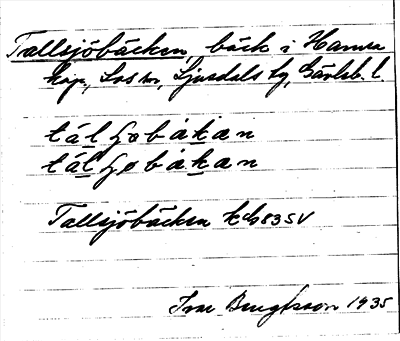 Tallsjöbäcken, bäck i Hamra
kap., Los sn, Ljusdals tg, Gävleb. l.
tälʃøbäkan
tälʃøbäkan
Tallsjöbäcken kbl 83 SV
Ivar Bengtsson 1935